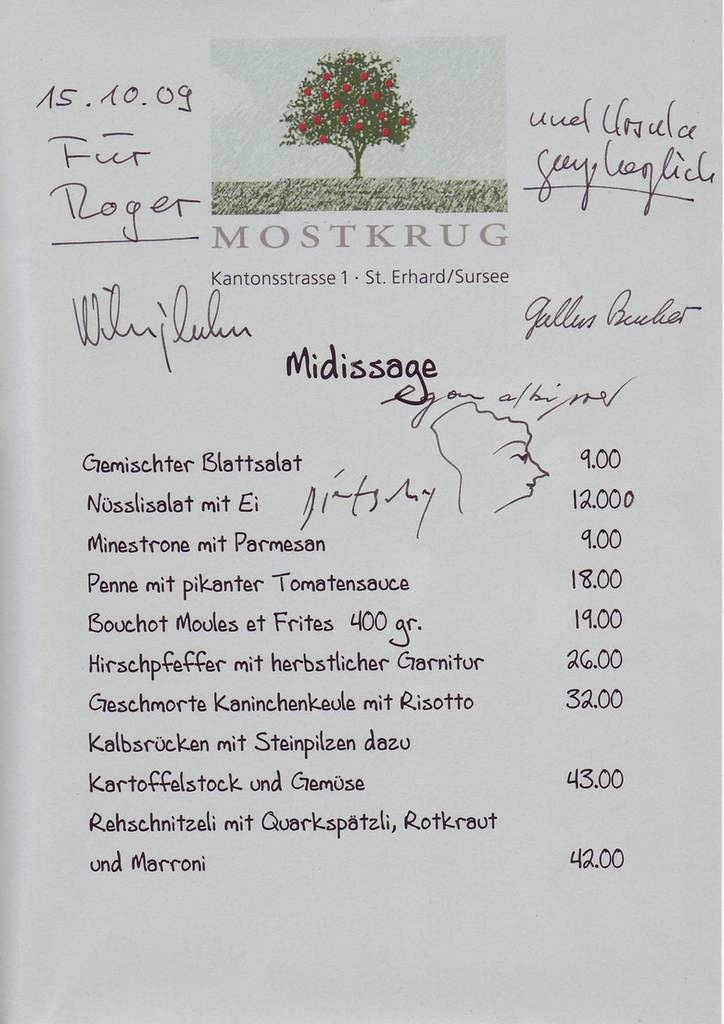 15.10.09
Für
Roger
und Ursula
ganz herzlich
MOSTKRUG
Kantonsstrasse 1 · St. Erhard/Sursee
Gallus Bucher
Midissage
egon albisser
Gemischter Blattsalat 9.00
Nüsslisalat mit Ei 12.000
Minestrone mit Parmesan 9.00
Penne mit pikanter Tomatensauce 18.00
Bouchot Moules et Frites 400 gr. 19.00
Hirschpfeffer mit herbstlicher Garnitur 26.00
Geschmorte Kaninchenkeule mit Risotto 32.00
Kalbsrücken mit Steinpilzen dazu
Kartoffelstock und Gemüse 43.00
Rehschnitzeli mit Quarkspätzli, Rotkraut
und Marroni 42.00